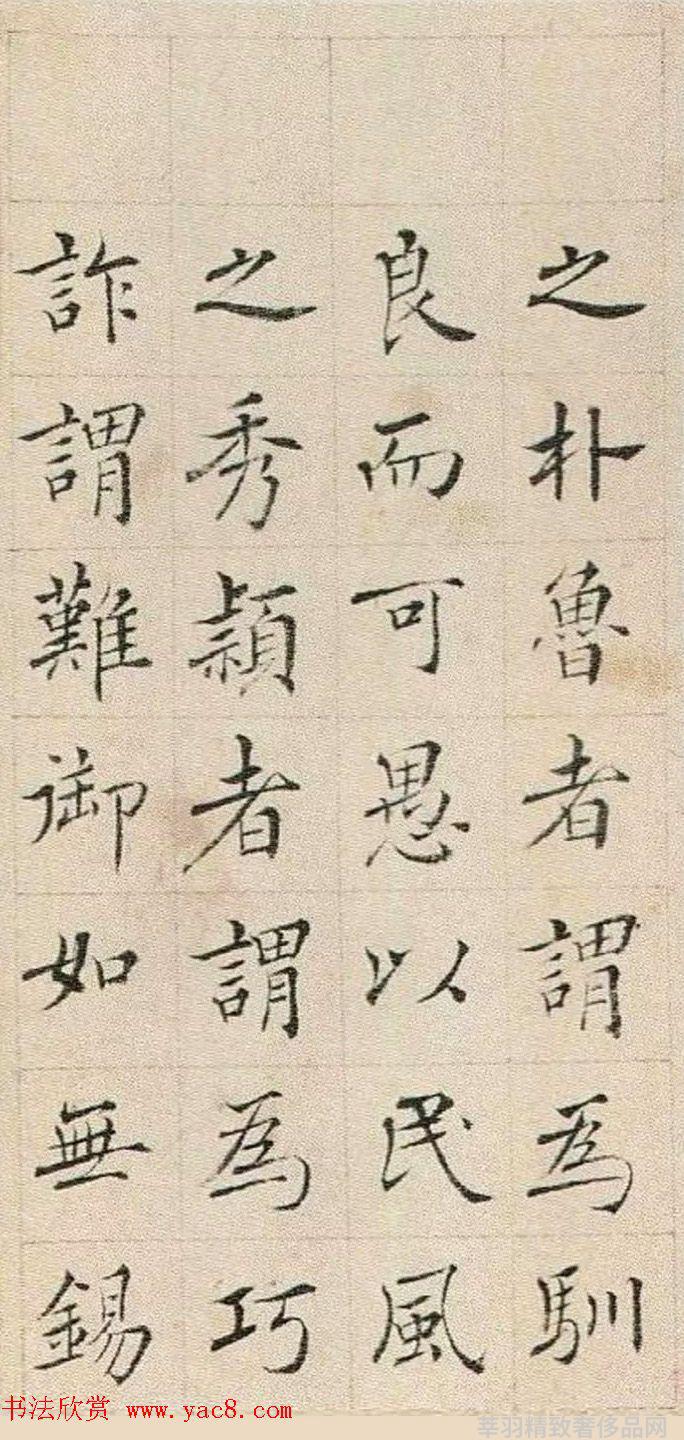 之朴魯者謂為馴
良而可愚以民風
之秀穎者謂為巧
詐謂難御如無錫
书法欣赏 www.yac8.com
莘羽精致奢侈品网